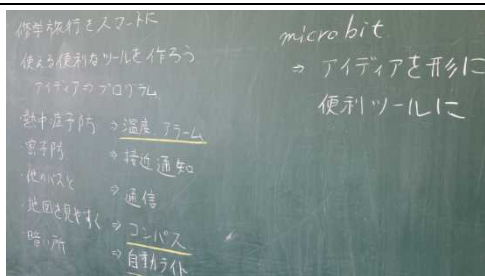 修学旅行をスマートに
使える便利なツールを作ろう
アイディア⇒プログラム
・熱中症予防 ⇒ 温度、アラーム
・窓予防 ⇒ 接近通知
・他のバスと ⇒ 通信
・地図を見やすく ⇒ コンパス
・暗い所 ⇒ 自動ライト
microbit
⇒ アイディアを形に
便利ツールに